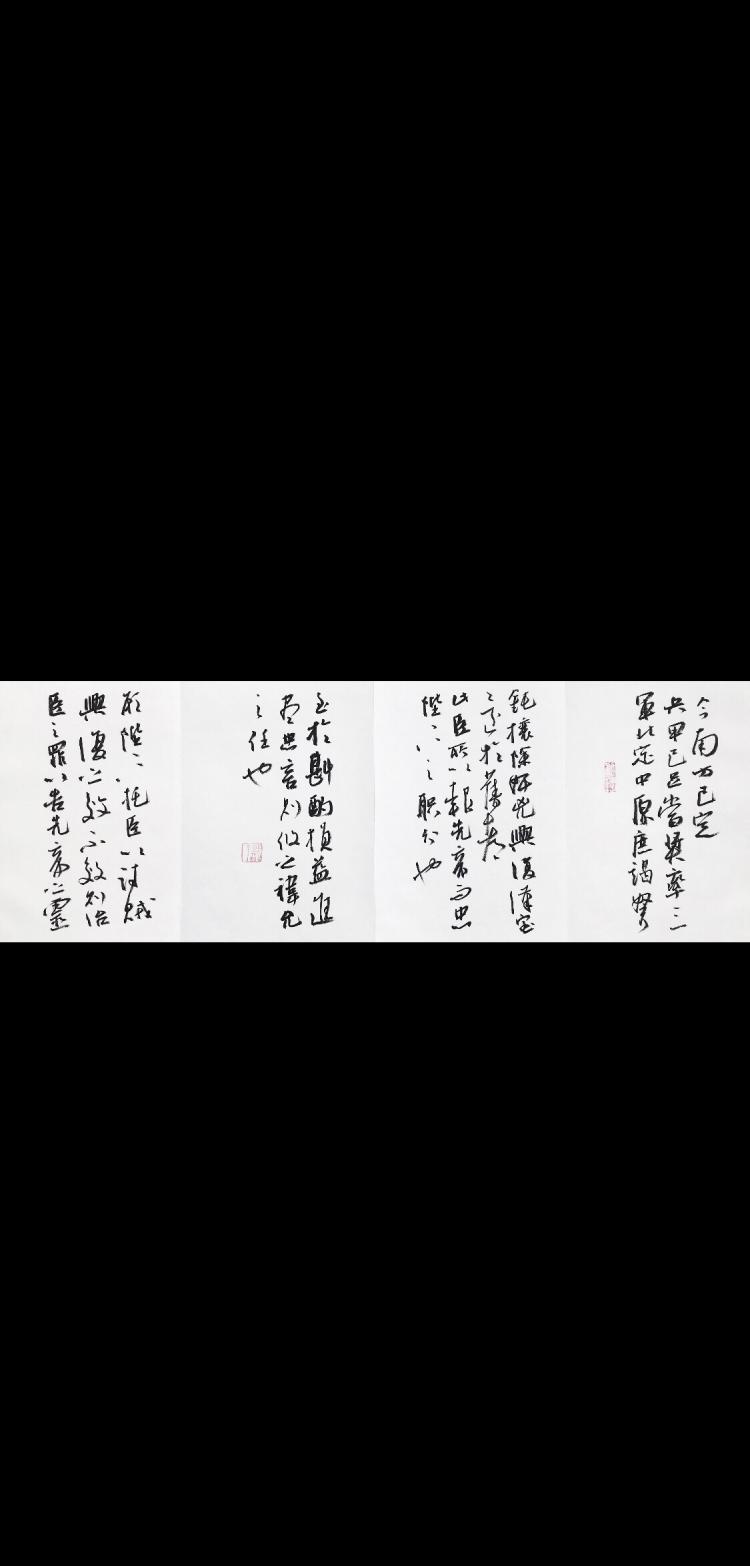 今南方已定
兵甲已足當獎率三
軍北定中原庶竭駑
鈍攘除奸兇興復漢室
還於舊都
此臣所以報先帝而忠
陛下之職分也
至於斟酌損益進
盡忠言則攸之禕允
之任也
願陛下托臣以討賊
興復之效不效則治
臣之罪以告先帝之靈